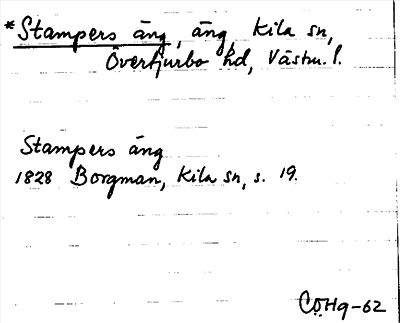 *Stampers äng, äng, Kila sn,
Övertjurbo hd, Västm. l.
Stampers äng
1828 Borgman, Kila sn, s. 19.